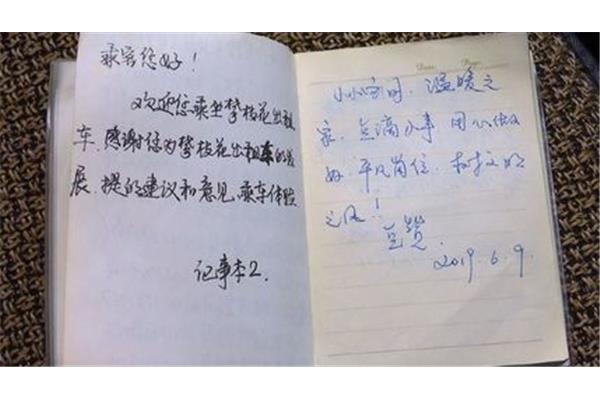 乘客您好！
欢迎您乘坐攀枝花出租
车.感谢您为攀枝花出租车的发
展.提的建议和意见.乘车体验
记事本2.
Date. Page.
小小空间.温暖之
家.点滴小事 用心做
好.平凡岗位.树文明
之风！
点赞.
2019.6.9.